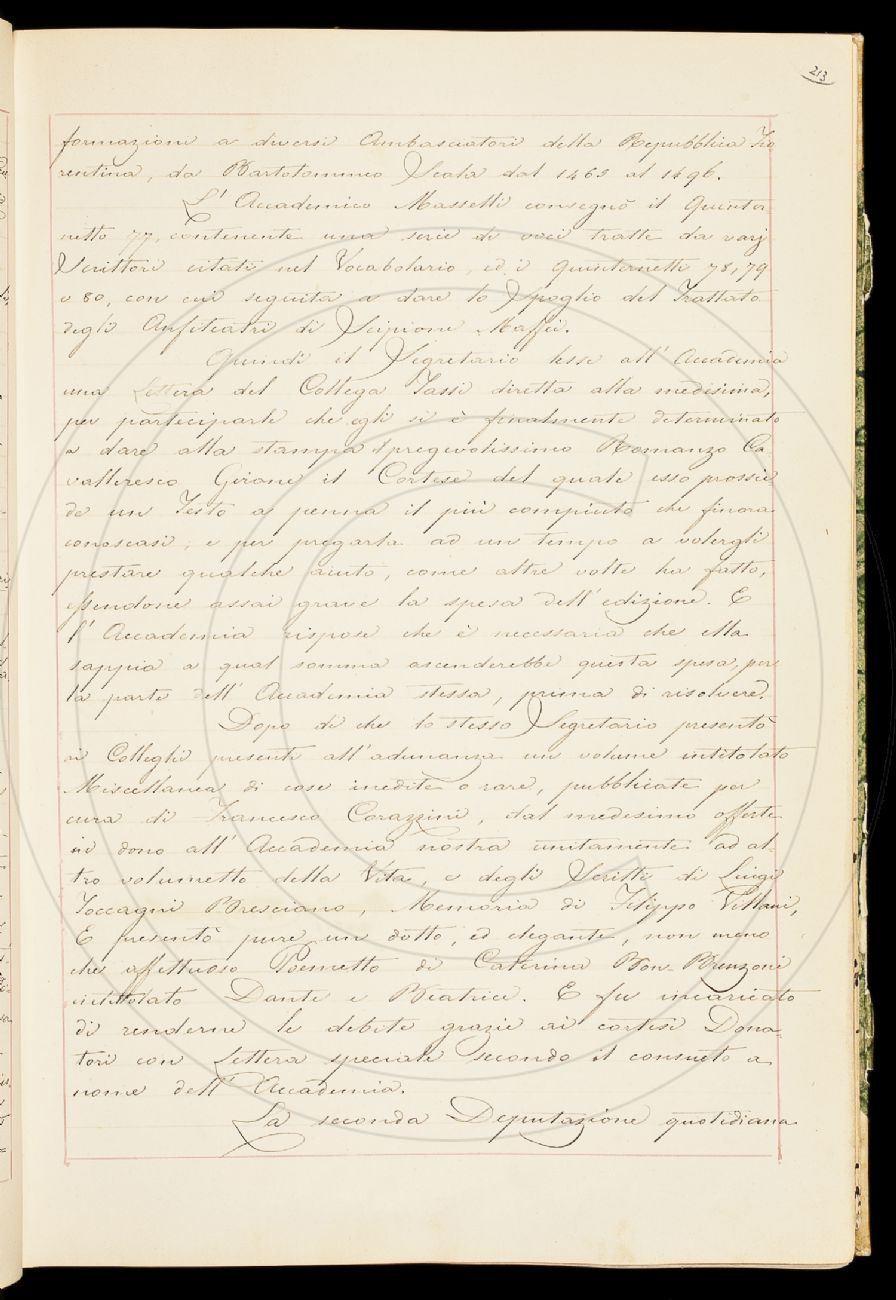 213
formazioni a diversi Ambasciatori della Repubblica Fio
rentina, da Bartolommeo Scala dal 1465 al 1496.
L' Accademico Masselli consegnò il Quinter
netto 77, contenente una serie di voci tratte da varj
Scrittori citati nel Vocabolario, ed i Quinternetti 78, 79
e 80, con cui seguita a dare lo Spoglio del Trattato
degli Anfiteatri di Scipione Maffei.
Quindi il Segretario lesse all' Accademia
una Lettera del Collega Tassi diretta alla medesima,
per parteciparle che egli si è finalmente determinato
a dare alla stampa il pregevolissimo Romanzo Ca
valleresco Girone il Cortese del quale esso possie
de un Testo a penna il più compiuto che finora
conoscasi; e per pregarla ad un tempo a volergli
prestare qualche aiuto, come altre volte ha fatto,
essendone assai grave la spesa dell' edizione. E
l' Accademia rispose che è necessario che ella
sappia a qual somma ascenderebbe questa spesa, per
la parte dell' Accademia stessa, prima di risolvere.
Dopo di che lo stesso Segretario presentò
ai Colleghi presenti all' adunanza un volume intitolato
Miscellanea di cose inedite o rare, pubblicate per
cura di Francesco Corazzini, dal medesimo offerte
in dono all' Accademia nostra unitamente ad al-
tro volumetto della Vita, e degli Scritti di Luigi
Toccagni Bresciano, Memoria di Filippo Villani,
E presentò pure un dotto, ed elegante, non meno
che affettuoso Poemetto di Caterina Bon-Brenzoni
intitolato Dante e Beatrice. E fu incaricato
di renderne le debite grazie ai cortesi Dona-
tori con Lettera speciale secondo il consueto a
nome dell' Accademia.
La seconda Deputazione quotidiana